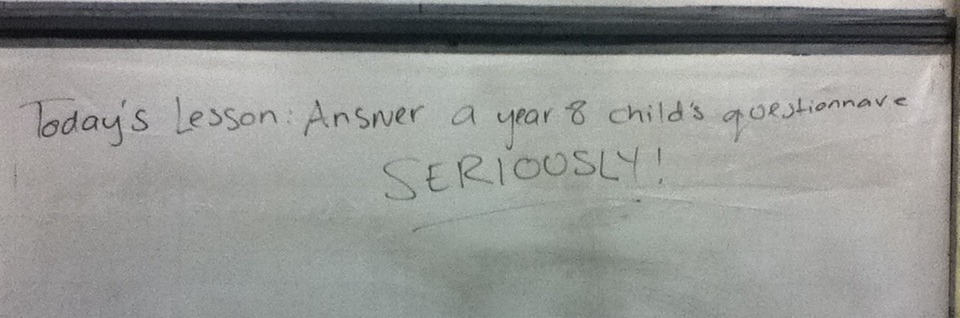 Today's Lesson: Answer a year 8 child's questionnare
SERIOUSLY!